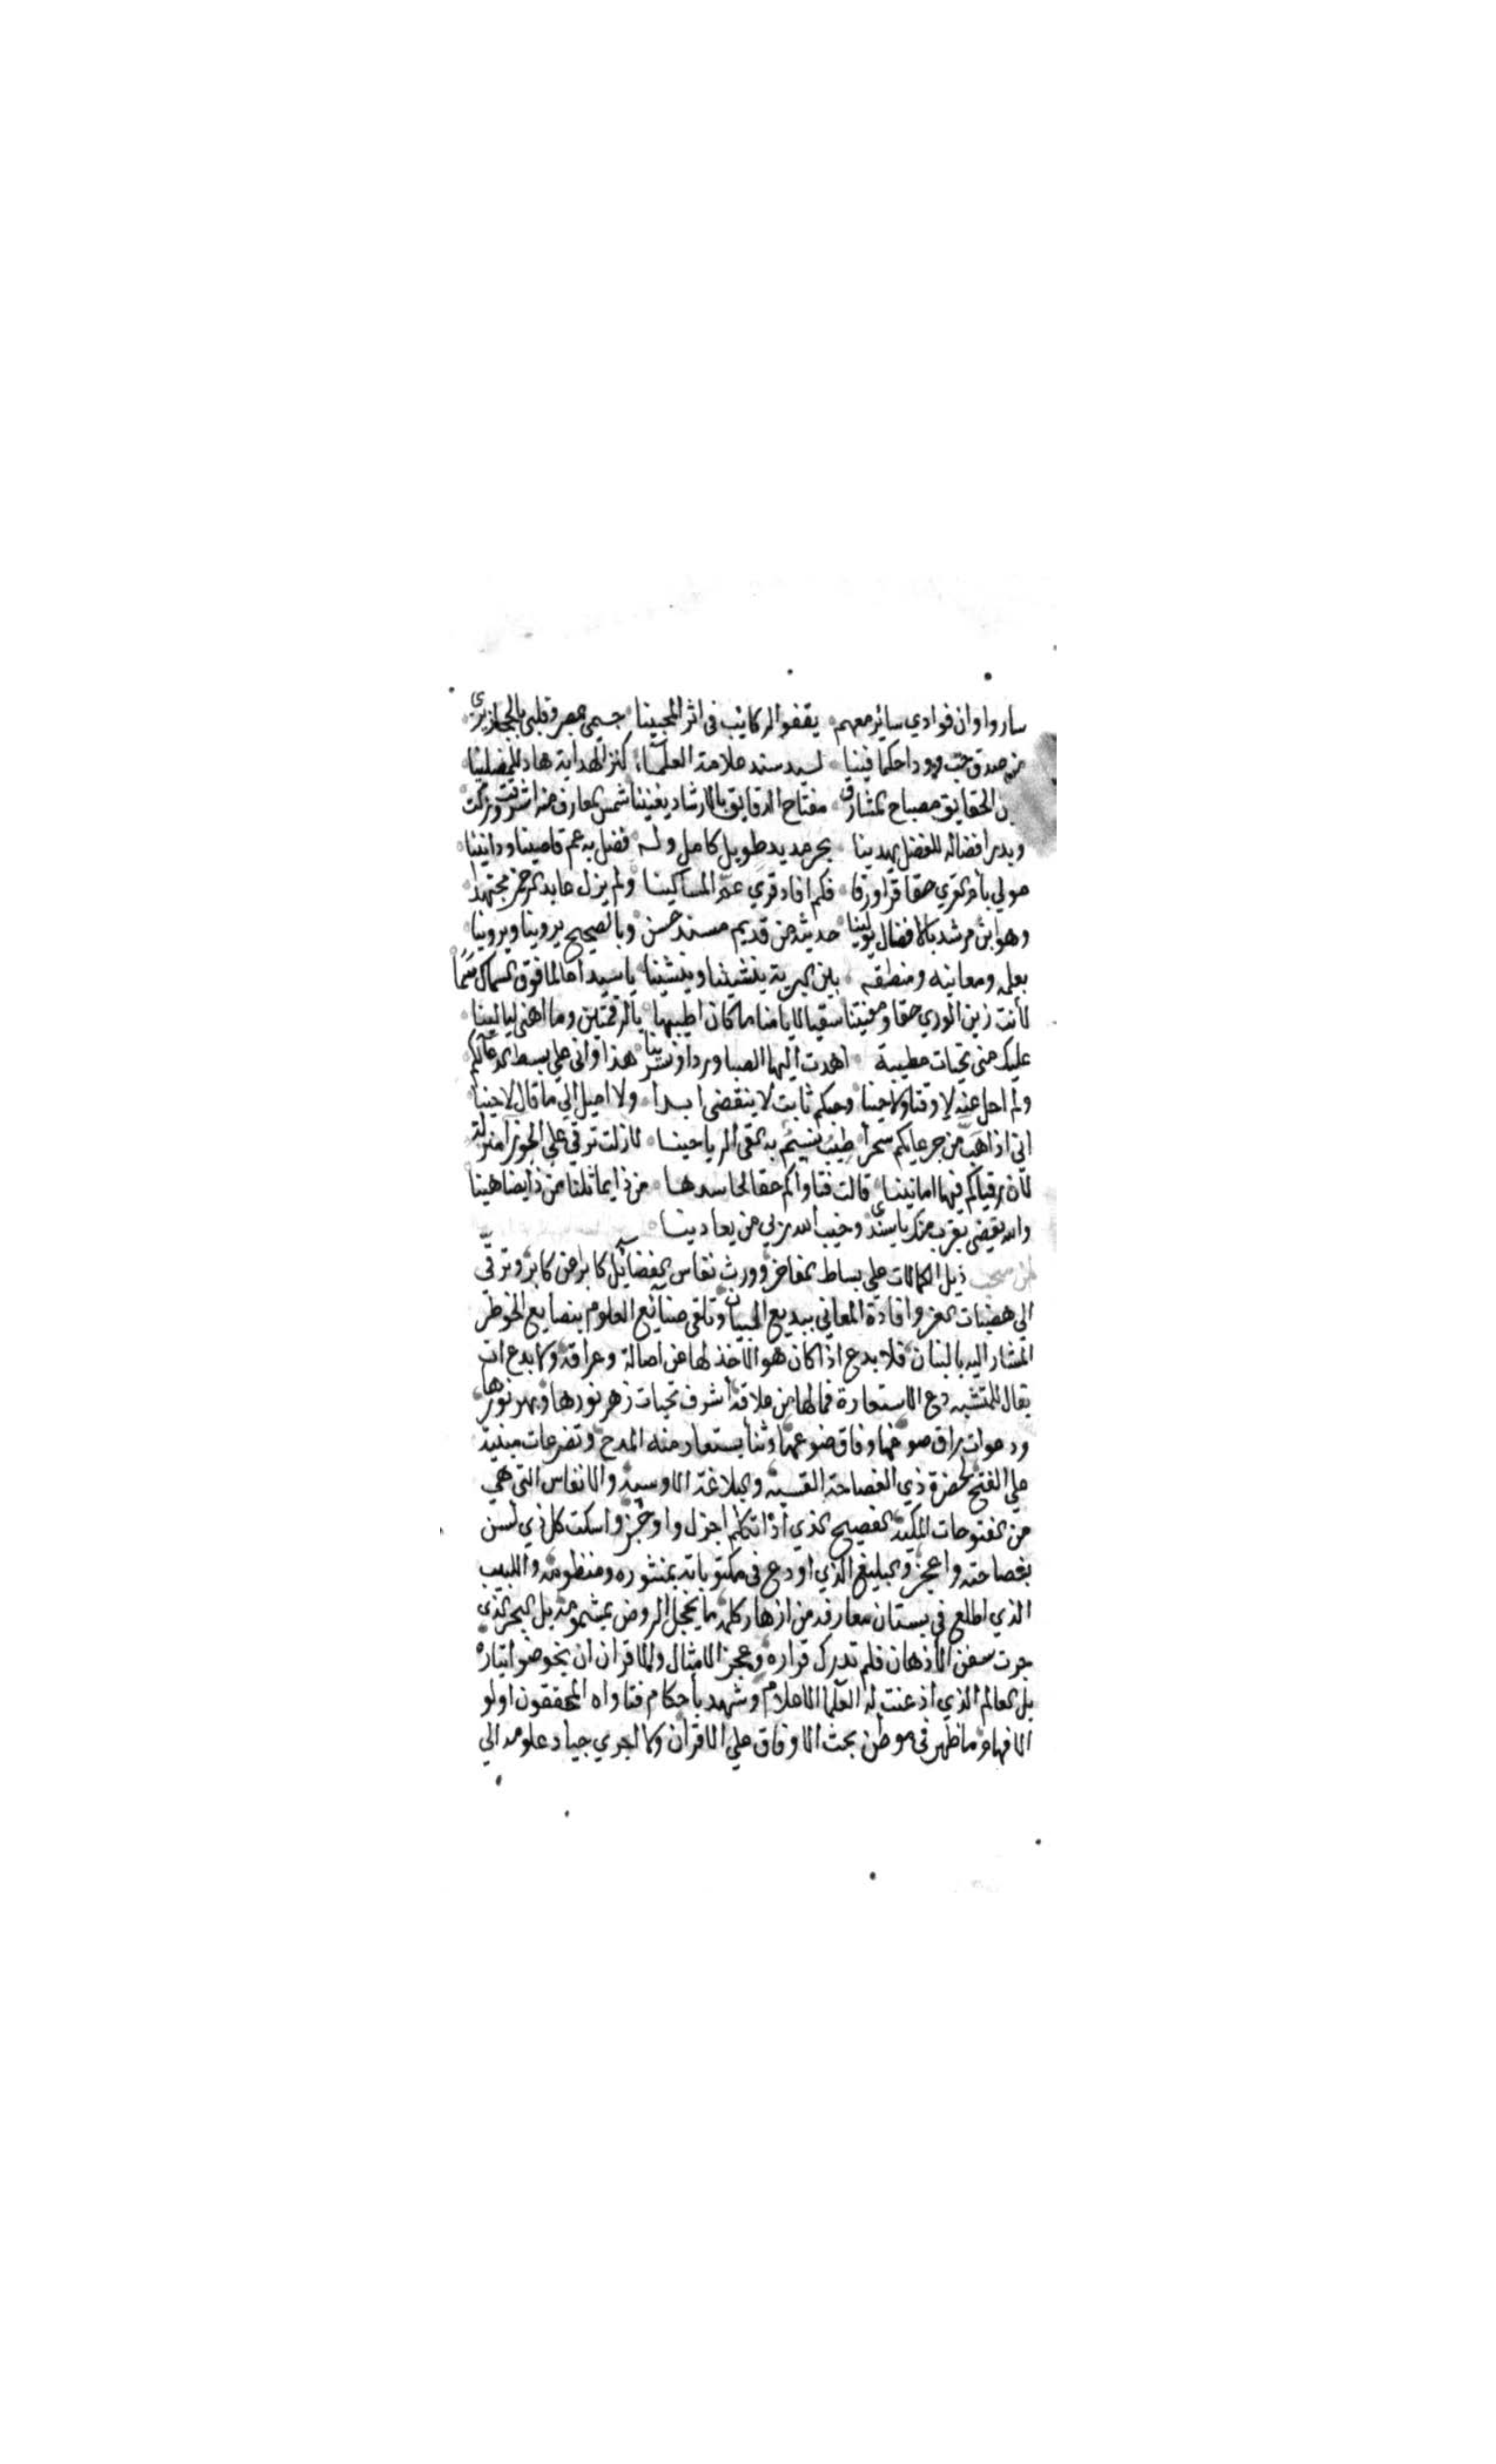 ساروا وان فوادي سائر معهم يقفوا الركايب في اثر المحبينا جسمي بمصر وقلبي بالحجاز يرى
صدق حب وودا حكما فينا لسيد سند علامة العلماء كنز الهداية هاد للمضلينا
الحقايق مصباح المشارق مفتاح الدقايق بالارشاد يغنينا شمس المعارف منه اشرقت وزكت
وبدر افضاله للفضل يهدينا بحر مديد طويل كامل وله فضل به عم قاصينا ودانينا
مولي بام القري حقا قرا ورقا فكم افاد قري عم المساكينا ولم يزل عابد الرحمن مجتهدا
وهو ابن مرشد بالافضال يولينا حديثه عن قديم مسند حسن وبالصحيح يروينا ويروينا
بعلمه ومعانيه ومنطقه بين البرية ينشينا وينشينا يا سيدا عالما فوق السماك سما
لانت زين الوري حقا ومفيتنا سقيا لايامنا ما كان اطيبها بالرقمتين وما اهني ليالينا
عليك مني تحيات مطيبة اهدت اليها الصبا وردا ونسرينا هذا واني علي بسط الدعا لكم
ولم احل عنه لا وقتا ولا حينا وحبكم ثابت لا ينقضي ابدا ولا اميل الي ما قال لاحينا
اني اذا هب من جرعايكم سحرا طيب نسيم به تلقي الرياحينا لازلت ترقي علي الجوزا منزلة
لان رقياكم فيها امانينا قالت فتاواكم حقا لحاسدها من ذا يماثلنا من ذا يضاهينا
والله يقضي بقرب منك يا سندي وخيب الله ربي من يعادينا
لمن سحب ذيل الكمالات علي بساط المفاخر وورث نفاس الفضائل كابرا عن كابر وترقي
الي هضبات العز وافادة المعاني ببديع البيان وتلقي صنائع العلوم بنصايع الخوطر
المشار اليه بالبنان فلا بدع اذا كان هو الاخذ لها عن اصالة وعراقة ولا بدع ان
يقال للمتشبه دع الاستعارة فمالها من علاقة اشرف تحيات زهر نورها وبهر نورها
ودعوات راق صوغها وفاق ضوعها وثنا يستعار منه المدح وتضرعات مبنية
علي الفتح لحضرة ذي الفصاحة القسية والبلاغة الاوسية والانفاس التي هي
من الفتوحات المكية الفصيح الذي اذا تكلم اجزل واوجز واسكت كل ذي لسن
بفصاحته واعجز والبليغ الذي اودع في مكتوباته بمنثوره ومنظومه واللبيب
الذي اطلع في بستان معارفه من ازهار كلمه ما يخجل الروض بمشمومه بل البحر الذي
جرت سفن الاذهان فلم تدرك قراره وعجز الامثال والاقران ان يخوضوا تياره
بل العالم الذي اذعنت له العلما الاعلام وشهد باحكام فتاواه المحققون اولو
الافهام ما ظهر في موطن بحث الا وفاق علي الاقران ولا اجري جياد علومه الي